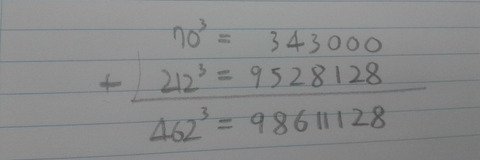 70³ = 343000
+ 212³ = 9528128
462³ = 98611128